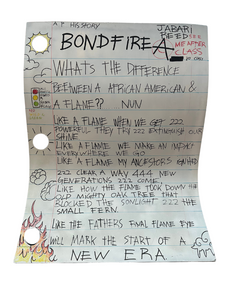 A.P HISTORY
JABARI
REED
BONDFIRE
A-
ME AFTER
CLASS
WHATS THE DIFFERENCE
BETWEEN A AFRICAN AMERICAN &
A FLAME?? NUN
LIKE A FLAME WHEN WE GET 222
POWERFUL THEY TRY 222 EXTINGUISH OUR
SHINE
LIKE A FLAME WE MAKE AN IMPACT
EVERYWHERE WE GO
LIKE A FLAME MY ANCESTORS
222 CLEAR A WAY 444 NEW
GENERATIONS 222 COME.
LIKE HOW THE FLAME TOOK DOWN
OLD MIGHTY OAK TREE THAT
BLOCKED THE SONLIGHT 222 THE
SMALL FERN.
LIKE THE FATHERS FINAL FLAME
WILL MARK THE START OF A
NEW ERA